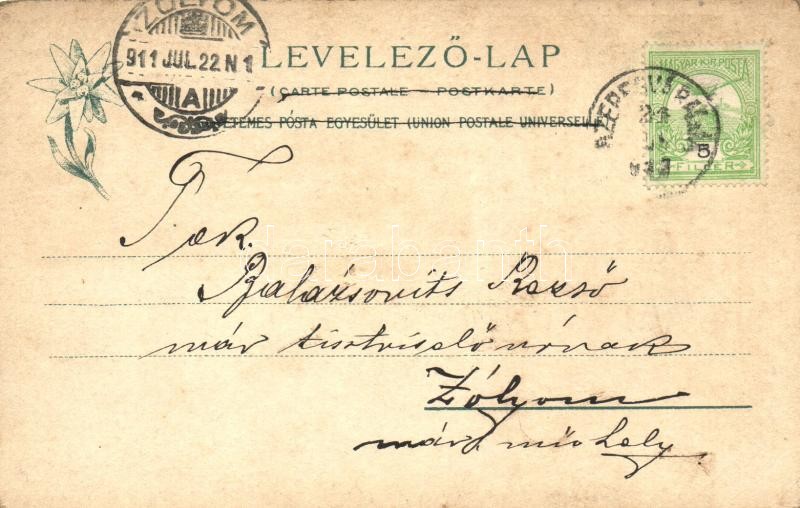 ZÓLYOM
911 JUL. 22 N 1
A
LEVELEZŐ-LAP
(CARTE POSTALE – POSTKARTE)
EGYETEMES PÓSTA EGYESÜLET (UNION POSTALE UNIVERSELLE)
MAGYAR KIR. POSTA
5
FILLÉR
SZEPESVÁRALJA
Tek.
Balázsovits Rezső
máv tisztviselő úrnak
Zólyom
máv. műhely
darabanth